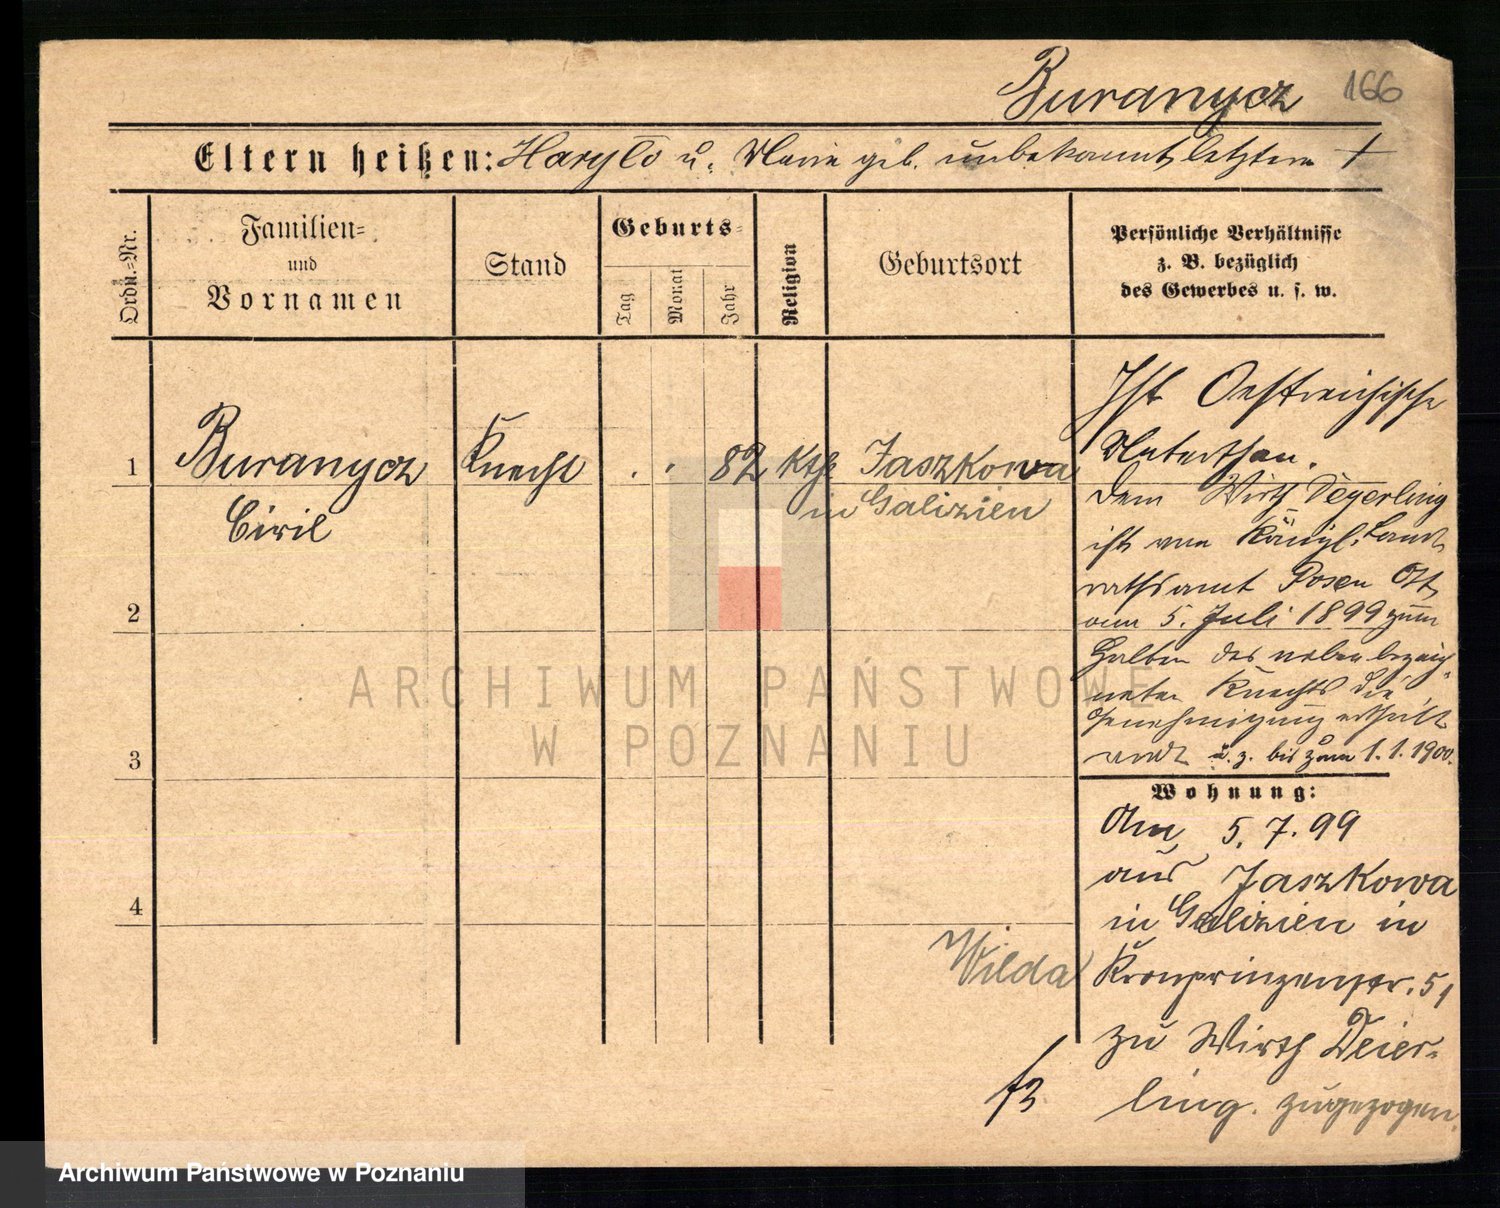 Buranycz 166
Eltern heißen: Haryto u. Marie geb. unbekannt, letztere †
Ordn.-Nr.
Familien-
und
Vornamen
Stand
Geburts-
Tag
Monat
Jahr
Religion
Geburtsort
Persönliche Verhältnisse
z. B. bezüglich
des Gewerbes u. s. w.
1 Buranycz Knecht . . 82 Kth Jaszkowa
Ciril in Galizien
2
3
4
Ist Oestreichische
Unterthan.
Dem Wirth Degerling
ist vom Königl. Land
rathsamt Posen Ost
vom 5. Juli 1899 zum
Halten des nebenbezeich-
neten Knechts die
Genehmigung ertheilt
u. z. bis zum 1.1.1900.
Wohnung:
Am 5.7.99
aus Jaszkowa
in Galizien in
Wilda Kronprinzenstr. 51
zu Wirth Deier-
ling. zugezogen.
ARCHIWUM PAŃSTWOWE
W POZNANIU
Archiwum Państwowe w Poznaniu